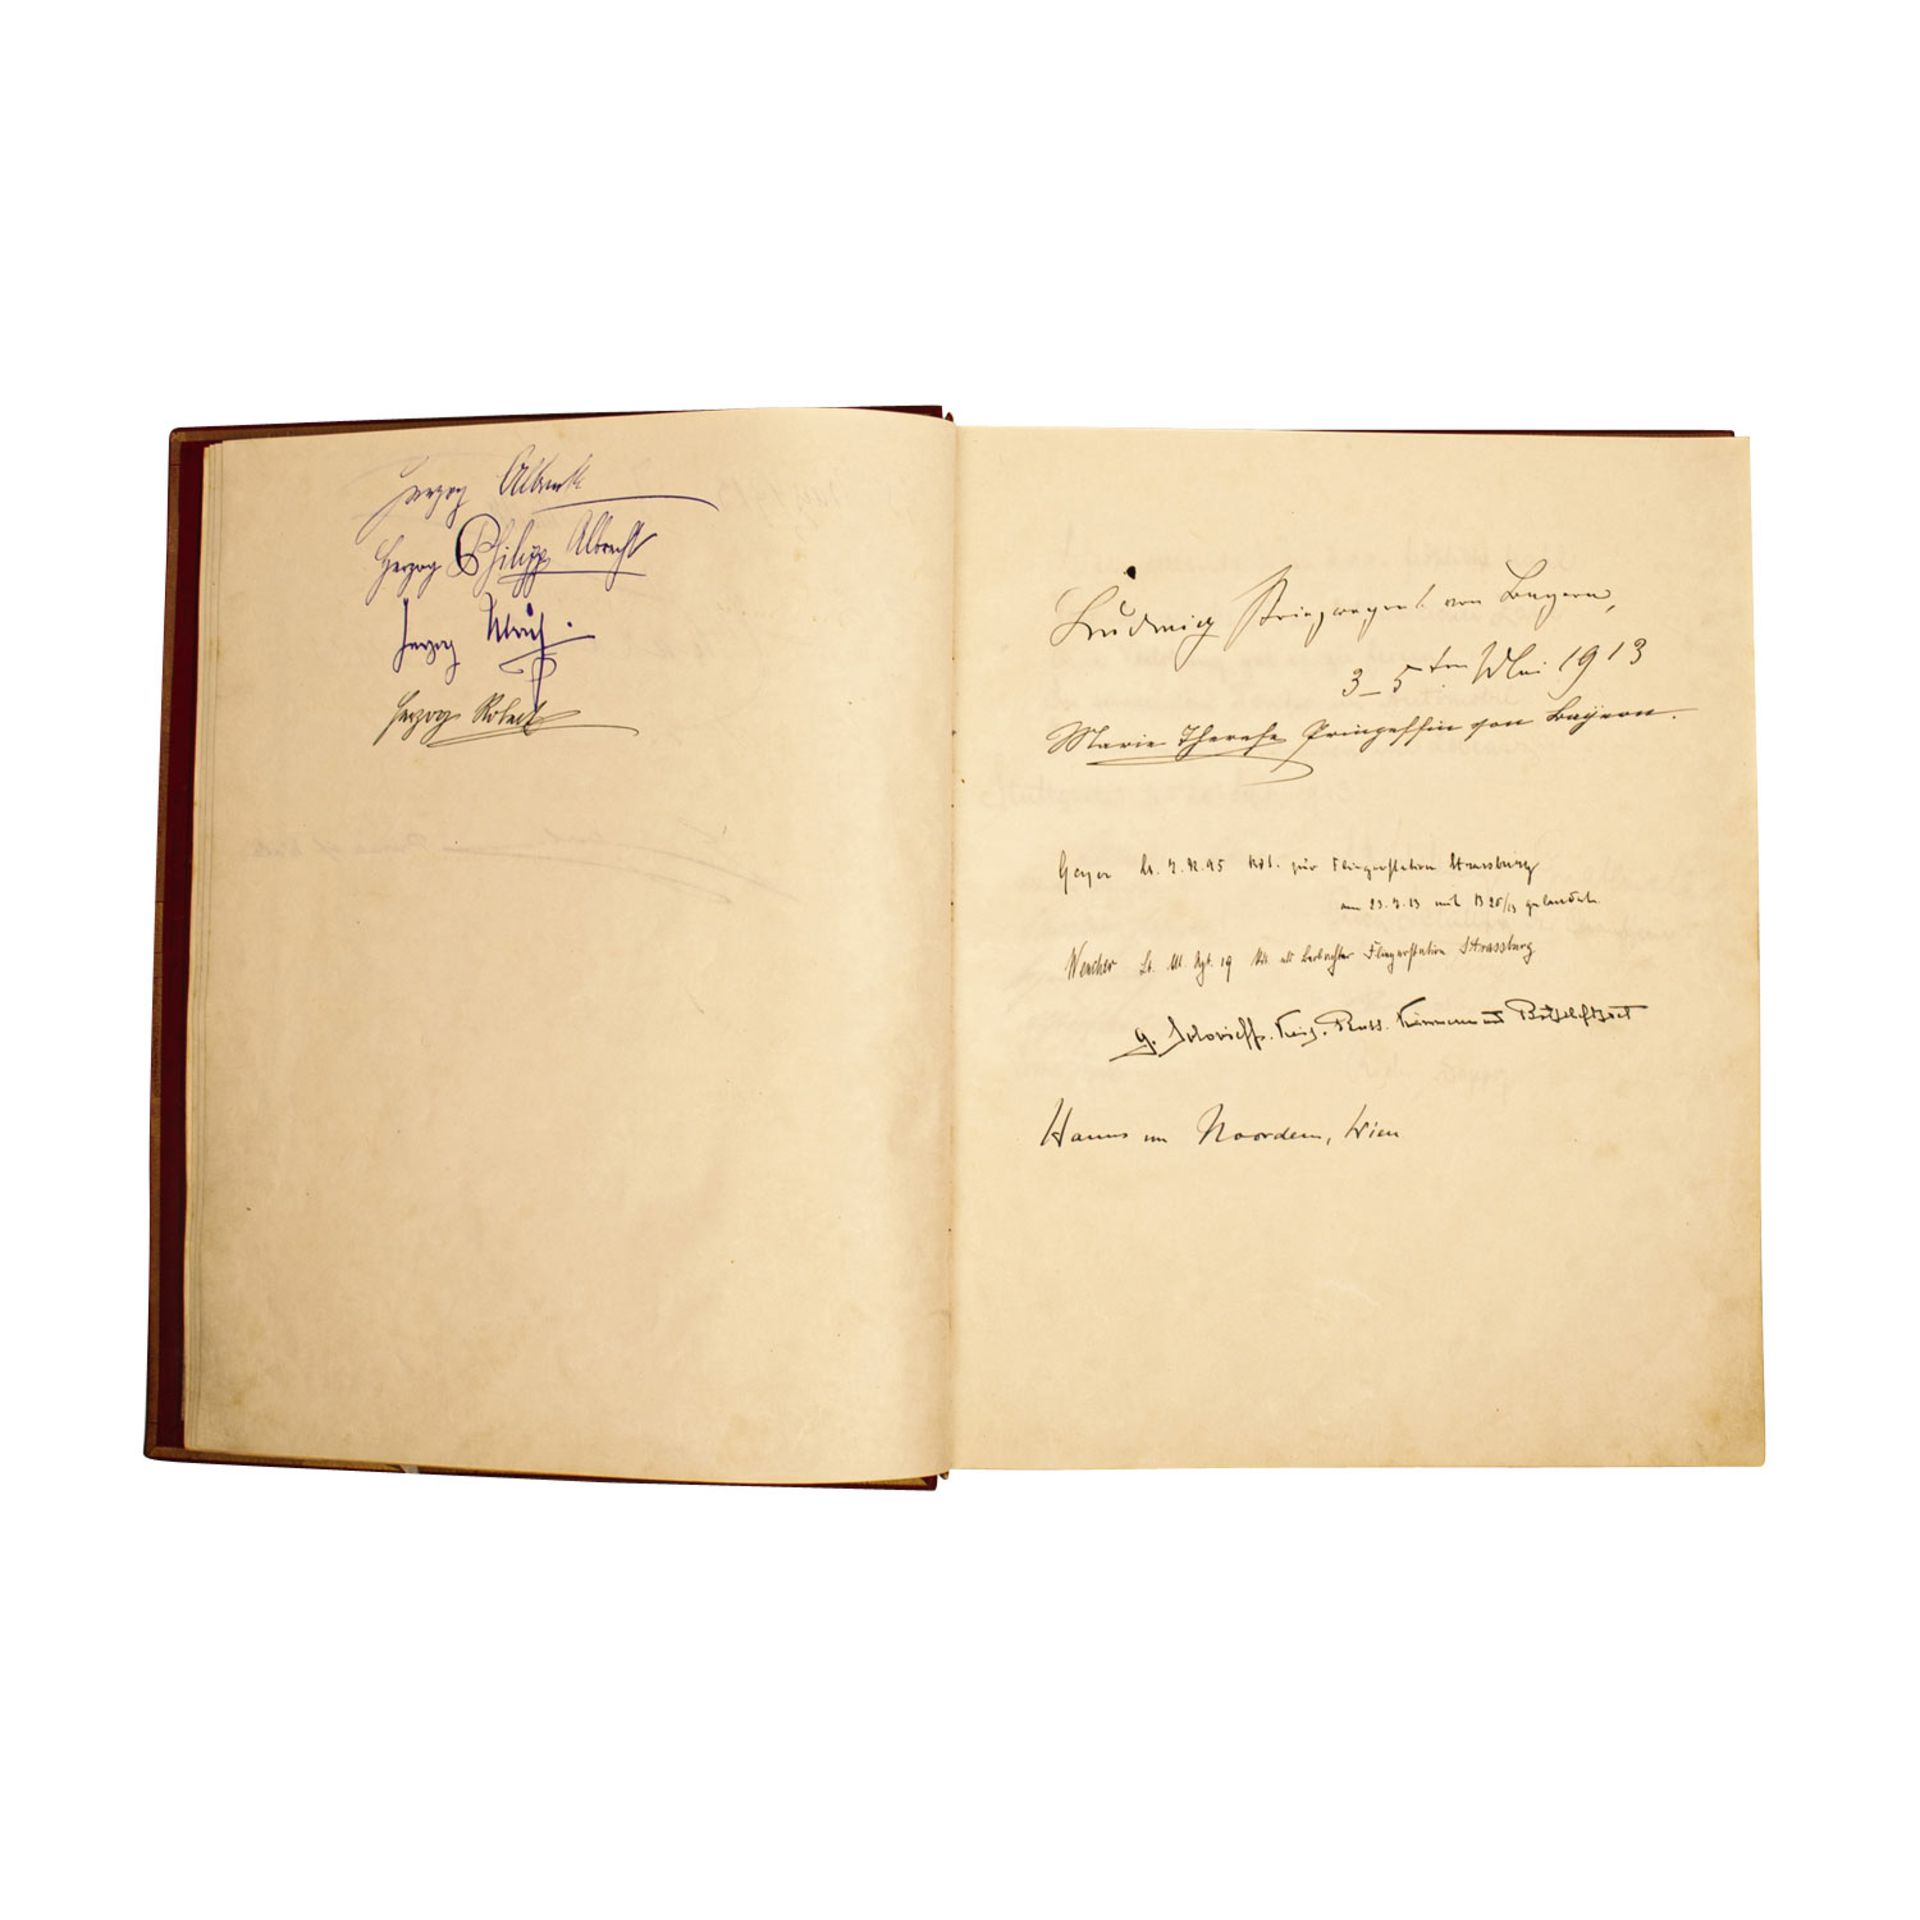 Herzog Albrecht
Herzog Philipp Albrecht
Herzog Ulrich.
Herzog Robert
Ludwig Prinzregent von Bayern,
3–5ten Mai 1913
Marie Therese Prinzessin von Bayern.
Geyer Lt. kdt. zur Fliegerstation Strassburg
am 23.7.13 mit B 20/13 gelandet.
Wencher Lt. Rgt. 19 kdt. als Beobachter Fliegerstation Strassburg
g. Botschaftsrat
Hanns von Noorden, Wien